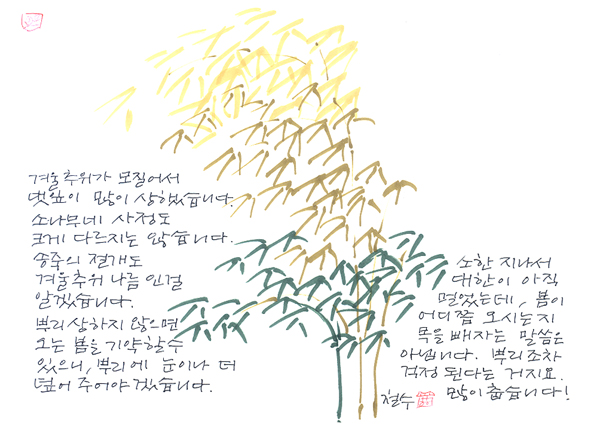 겨울추위가 모질어서
댓잎이 많이 상했습니다.
소나무네 사정도
크게 다르지는 않습니다.
송죽의 절개도
겨울추위 나름인걸
알겠습니다.
뿌리 상하지 않으면
오는 봄을 기약할 수
있으니, 뿌리에 눈이나 더
덮어 주어야겠습니다.
소한 지나서
대한이 아직
멀었는데, 봄이
어디쯤 오시는지
목을 빼자는 말씀은
아닙니다. 뿌리조차
걱정된다는 거지요.
많이 춥습니다!
철수